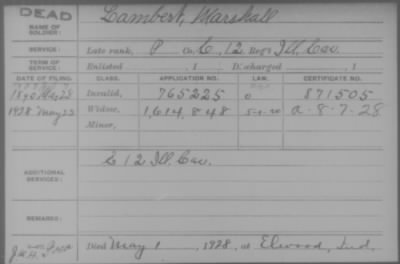 DEAD
NAME OF SOLDIER: Lambert, Marshall
SERVICE: Late rank, P Co. C, 12 Reg't Ill. Cav.
TERM OF SERVICE: Enlisted , 1 Discharged , 1
DATE OF FILING. CLASS. APPLICATION NO. LAW. CERTIFICATE NO.
1890 Invalid, 765225 871505
1928 May 22 Widow, 1,614,848 5-1-20 a-8-7-28
Minor,
ADDITIONAL SERVICES: C 12 Ill. Cav.
REMARKS:
Died May 1, 1928, at Elwood, Ind.